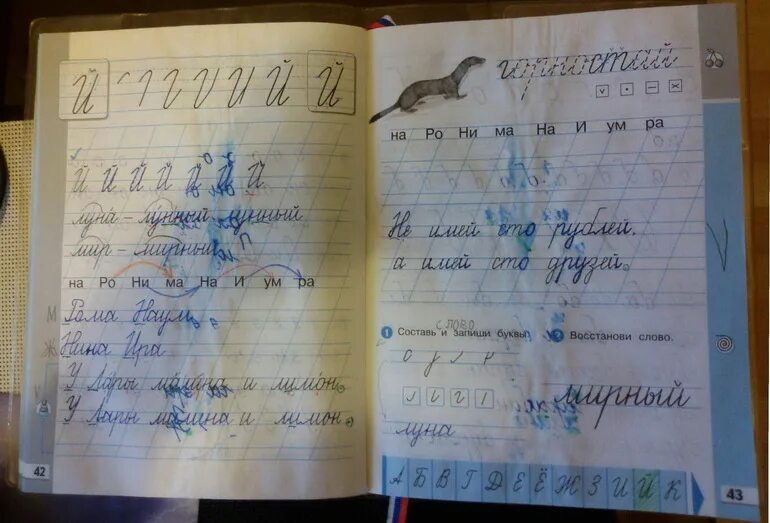 Й Й Й
Й Й Й Й Й Й Й
луна – лунный лунный
мир – мирный
на Ро Ни ма На И ум ра
Рома Наум
Нина Ира
У Лары малина и лимон.
У Лары малина и лимон.
42
горностай
на Ро Ни ма На И ум ра
Не имей сто рублей,
а имей сто друзей.
слово
1 Составь и запиши буквы. 2 Восстанови слово.
мирный
луна
А Б В Г Д Е Ё Ж З И Й К
43